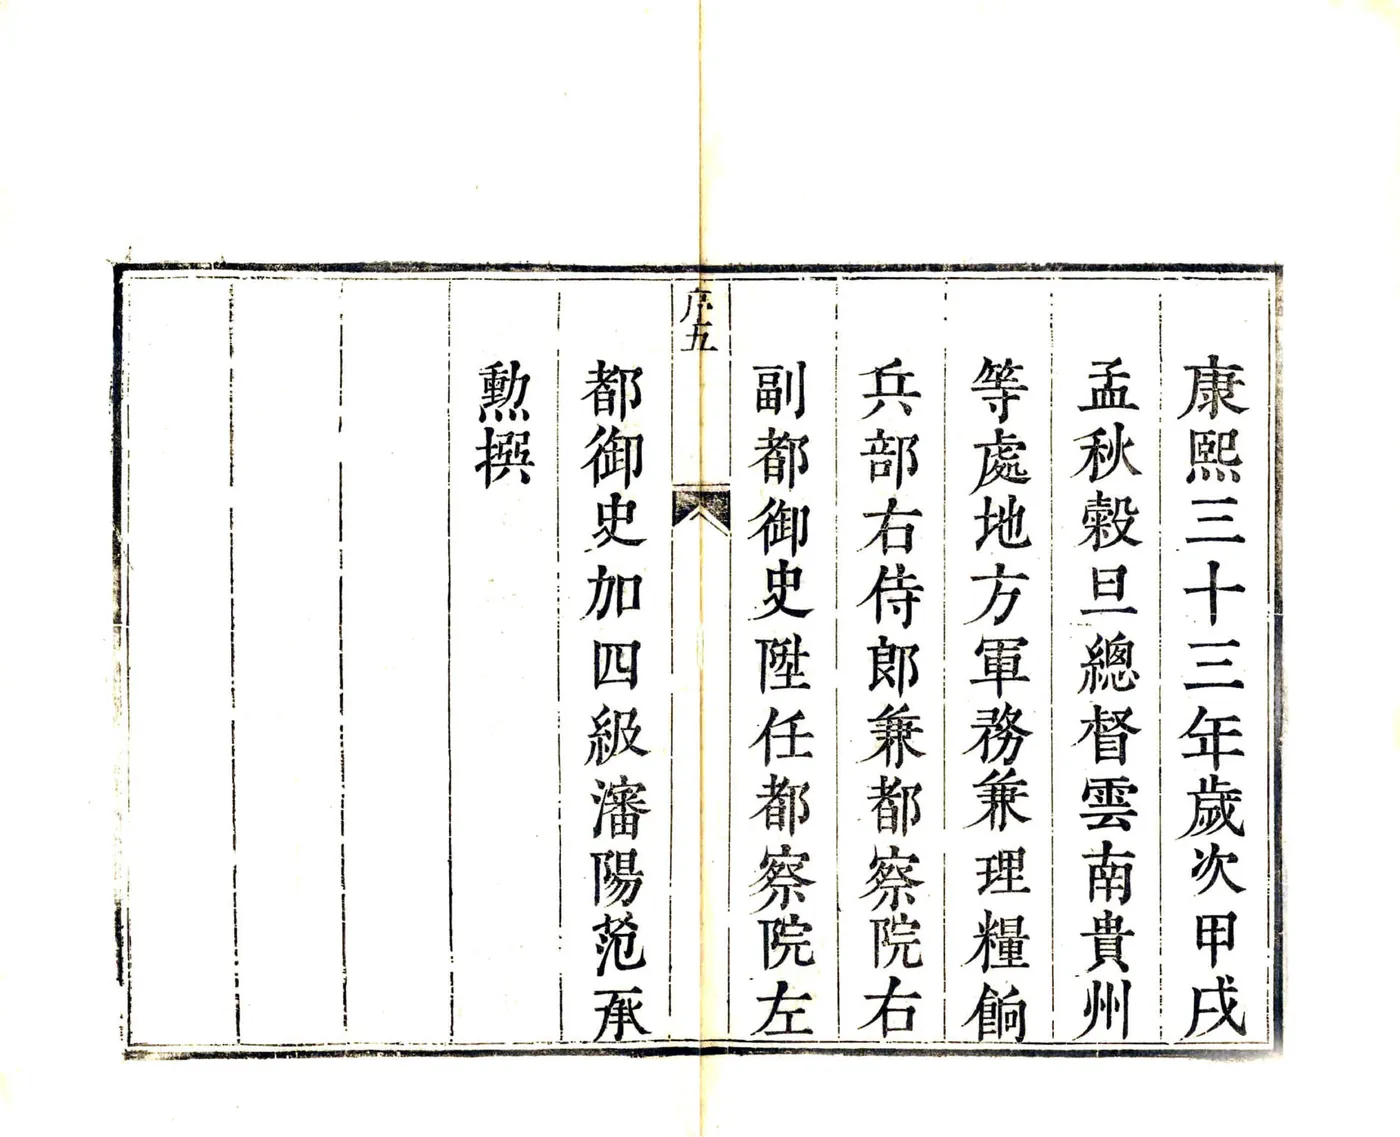 康熙三十三年歲次甲戌
孟秋穀旦總督雲南貴州
等處地方軍務兼理糧餉
兵部右侍郎兼都察院右
副都御史陞任都察院左
序五
都御史加四級瀋陽范承
勲撰